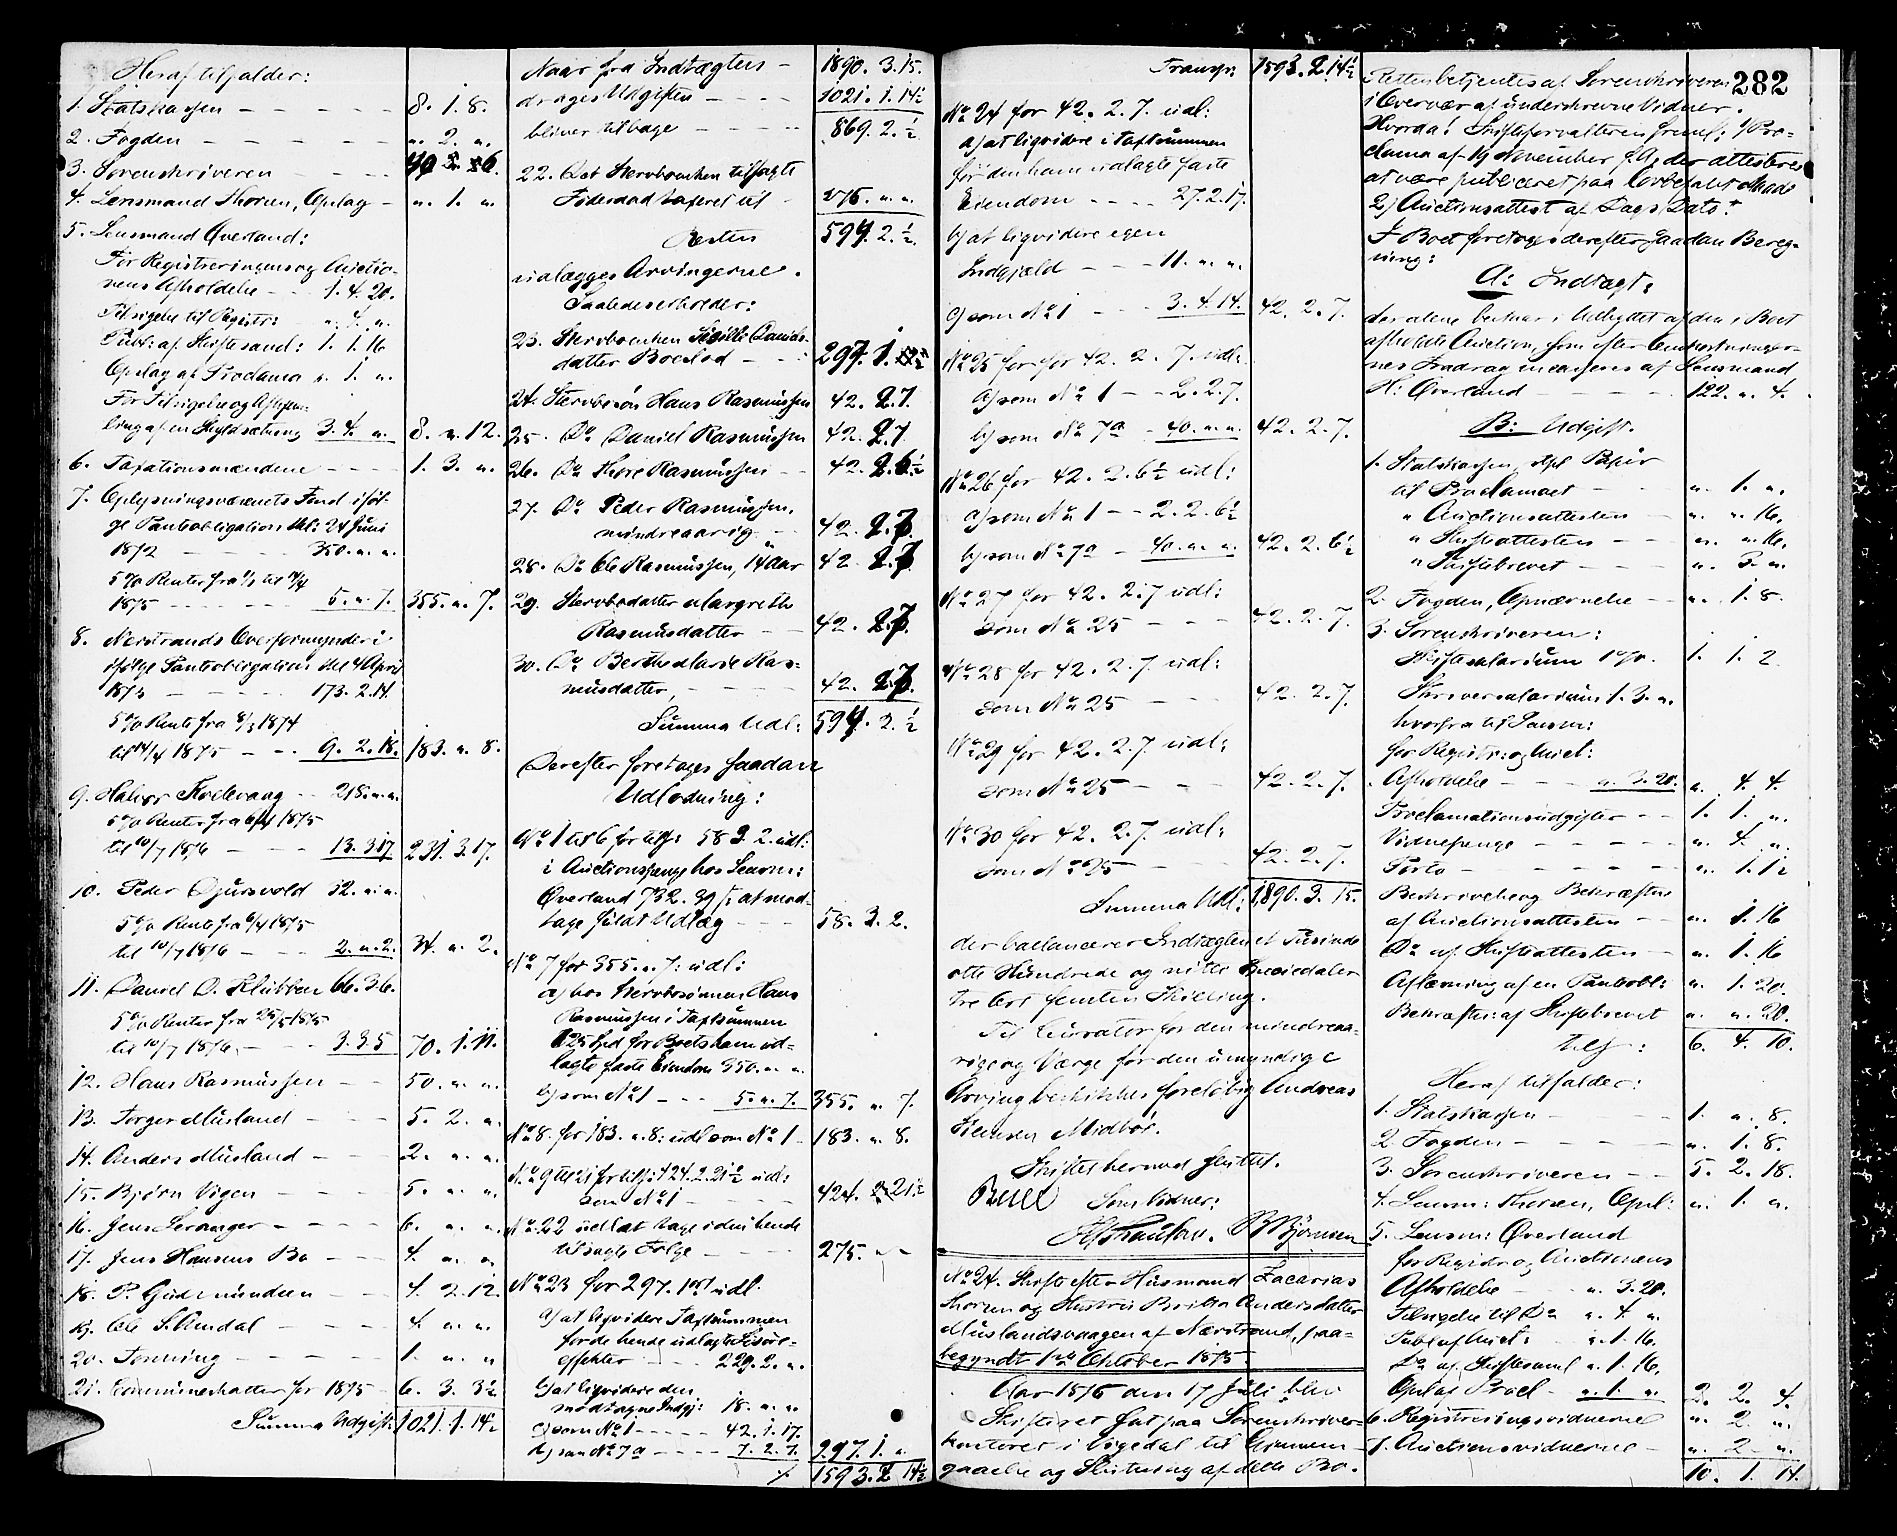 Heraf tilfalder:
1. Statskassen - - - - - 8. 1. 8.
2. Fogden - - - - - - ". 2. ".
3. Sorenskriveren - - - -
4. Lensmand Thoren, Opslag - ". 1. "
5. Lensmand Øverland:
For Registreringens og Auctio-
nens Afholdelse - - 1. 4. 20.
Tilsigelse til Registr: ". 4. ".
Publ: af Skiftesaml: 1. 1. 16
Opslag af Proclama ". 1. ".
For Tilsigelse og
ling af en Skyldsætning 3. 4. ". 8. ". 12.
6. Taxationsmændene - - - - 1. 3. ".
7. Oplysningsvæsenets Fond iføl-
ge Pantobligation dat: 24 Juni
1872 - - - - 350. ". ".
5 % Renter fra til
1875 - - - - - 5. ". 7. 355. ". 7.
8. Nerstrands Overformynderi
ifølge Pantobligation dat 4 April
187 - - - - - 173. 2. 14.
5 % Rente fra 1874
til 1875 - - - 9. 2. 18. 183. ". 8.
9. Halvor Hvelevaag - - 218. ". ".
5 % Renter fra 1875
til 10/7 1876 - - - 13. 3. 17 231. 3. 17.
10. Peder Djursvold 32. ". ".
5 % Rente fra 1875
til 10/7 1876 - - - 2. ". 2. 34. ". 2.
11. Daniel D. Klubben 66. 3. 6.
5 % Renter fra 1875
til 10/7 1876 - - - 3. 3. 5 70. 1. 11.
12. Hans Rasmussen - - 50. ". ".
13. Torger Musland - - - 5. 2. ".
14. Anders Musland - - - 2. ". ".
15. Bjørn Vigen - - - - 5. ". ".
16. Jens Leranger - - - - 6. ". ".
17. Jens Hansens Bo - - - 4. ". ".
18. P. Gudmundsen - - - 4. 2. 12.
19. Ole S. Amdal - - - - 4. ". ".
20. Tonning - - - - - 1. ". "
21. Communeskatter for 1875 - 6. 3. 3½
Summa Udgift: 1021. 1. 14½
Naar fra Indtægten - 1890. 3. 15.
drages Udgiften - - - - 1021. 1. 14½
bliver tilbage - - - - - 869. 2. ½
22. Det Stervboenken tilsagte
Føderaad taxeret til - 275. ". ".
Resten 594. 2. ½.
udlægges Arvingerne.
Saaledes erholder:
23. Stervboenken Daniels-
datter Boeslod - - - 297. 1.
24. Stervbosøn Hans Rasmussen 42. 2. 7.
25. Do Daniel Rasmussen 42. 2. 7
26. Do Thore Rasmussen - - 42. 2. 6½
27. Do Peder Rasmussen,
mindreaarig - - 42. 2. 7.
28. Do Ole Rasmussen, 14 Aar 42. 2. 7.
29. Stervbodatter Margrethe
Rasmusdatter - - - 42. 2. 7.
30. Do Berthe Marie Ras-
musdatter, - - - - - 42. 2. 7.
Summa Udl: 594. 2. ½
Derefter foretages saadan
Udlodning:
No 1 til 6 for tils: 58 3. 2. udl:
i Auctionspenge hos Lensm:
Øverland 732. at mod-
tage fuldt Udlæg - - - 58. 3. 2.
No 7 for 355. ". 7: udl:
a) hos Stervbosønnen Hans
Rasmussen i Taxtsummen
625 Spd for Boets ham ud-
lagte faste Eiendom 350. ". ".
b) som No 1 - - - 5. ". 7. 355. ". 7.
No 8. for 183. ". 8: udl som No 1 - 183. ". 8.
No 9 til 21 for tils: 424. 2. 21½ udl:
som No 1 - - - - 424. 2. 21½
No 22 udl at tage i den hende
tilsagte Følge - - - - 275. " "
No 23 for 297. 1. udl.
a) at liqvidere Taxtsummen
for de hende udlagte Løsøre-
effekter - - - - 229. 2. ".
b) at liqvidere den
modtagne Indgj: 18. ". "
c) som No 1 - - - - 42. 1. 17.
d) som No 7a - - - - 7. 2. 7. 297. 1. ".
1593. 2 14½
Transp: 1593. 2. 14½
No 24 for 42. 2. 7. udl:
a) at liqvidere i Taxtsummen
for den ham udlagte faste
Eiendom - - - - 27. 2. 17.
b) at liqvidere egen
Indgjæld - - - 11. ". ".
c) som No 1 - - - 3. 4. 14. 42. 2. 7.
No 25 for for 42. 2. 7. udl:
a) som No 1 - - 2. 2. 7.
b) som No 7a - 40. ". ". 42. 2. 7.
No 26 for 42. 2. 6½ udl:
a) som No 1 - - 2. 2. 6½
b) som No 7a - 40. ". ". 42. 2. 6½
No 27 for 42. 2. 7 udl:
som No 25 - - - - 42. 2. 7.
No 28 for 42. 2. 7. udl:
som No 25 - - - - 42. 2. 7.
No 29 for 42. 2. 7. udl:
som No 25 - - - 42. 2. 7.
No 30 for 42. 2. 7. udl:
som No 25 - - - - 42. 2. 7.
Summa Udl: 1890. 3. 15.
der ballancerer Indtægten et Tusinde
otte Hundrede og nitti Speciedaler
tre Ort femten Skilling.
Til Curator for den mindreaa-
rige og Værge for den umyndige
Arving beskikkes foreløbig Andreas
Midbør.
Skiftet hermed sluttet.
Som Vidner:
B Bjørnsen
No 24. Skifte efter Husmand Zacarias
Thoren og Hustru Britha Andersdatter
Muslandsvaagen af Nærstrand, paa-
begyndt 1ste Oktober 1875
Aar 1876 den 17 Juli blev
Skifteret sat paa Sorenskriver-
kontoret i Vigedal til Gjennem-
gaaelse og Slutning af dette Bo.
282
Retten betjentes af Sorenskriveren
i Overvær af underskrevne Vidner.
Hvorda! Skifteforvalteren freml: 1) Pro-
clama af 19 November f. A, der attesteres
at være publiceret paa lovbefalet Maade
2) Auctionsattest af Dags Dato.
I Boet foretoges derefter saadan Bereg-
ning:
A: Indtægt:
der alene bestaar i Udbyttet af den i Boet
afholdte Auction, som efter Omkostninger-
nes Fradrag incasseres af Lensmand
H: Øverland - - - - - 122. ". 4.
B: Udgift.
1. Statskassen, stpl Papir
til Proclamaet - - - ". 1. ".
" Auctionsattesten - - ". ". 16.
" Skifteattesten - - ". ". 16.
" Skiftebrevet - - - ". 3. ".
2. Fogden, Opnævnelse - - ". 1. 8.
3. Sorenskriveren:
Skiftesalarium 1 %. 1. 1. 2
Skriversalarium 1. 3. ".
hvorfra til Lensm:
for Registr: og Auct:
Afholdelse - - - ". 3. 20. ". 4. 4.
Proclamationsudgifter - - 1. 1. ".
Vidnepenge - - - - - ". 4. ".
Porto - - - - - - ". 1. 12
Beskrivelse og Bekræftelse
af Auctionsattesten - - ". 1. 16
Do af Skifteattesten - - ". 1. 16
Aflæsning af en Pantobl: ". 1. 20.
Bekræftn: af Skiftebrevet ". ". 20.
Tils: 6. 4. 10.
Heraf tilfalder:
1. Statskassen - - - - 1. ". 8.
2. Fogden - - - - - ". 1. 8.
3. Sorenskriveren - - 5. 2. 18.
4. Lensm: Thoren, Opsl: ". 1. ".
5. Lensm: Øverland
for Registr. og Auctionens
Afholdelse - - ". 3. 20.
Tilsigelse til Do ". 4. ".
Publ af Auct: ". 1. 16.
Do af Skiftesaml ". 1. 16.
Opslag Procl - ". 1. ". 2. 2. 4.
6. Registreringsvidnerne ". 2. ".
7. Auctionsvidnerne - ". 2. ".
10. 1. 14.